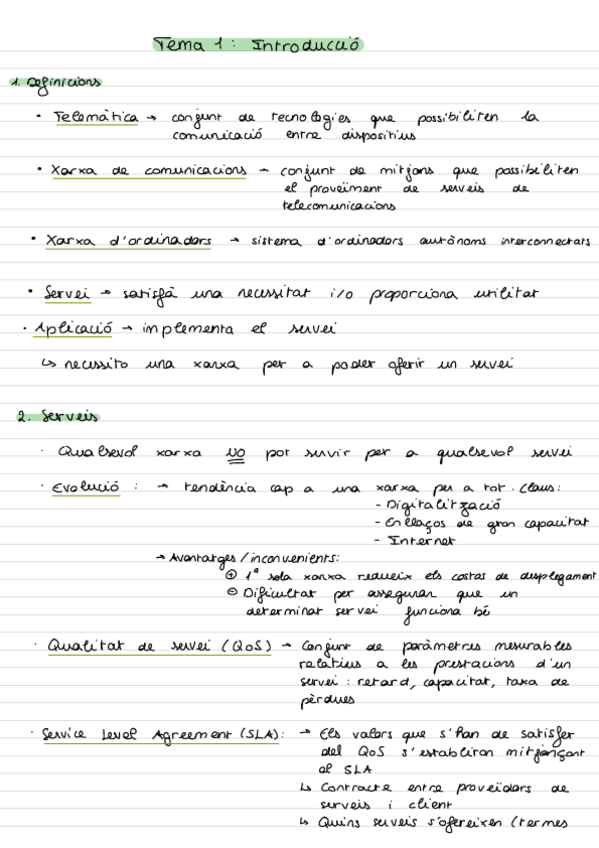 Tema 1: Introducció
1. Definicions
• Telemàtica → conjunt de tecnologies que possibiliten la
comunicació entre dispositius
• Xarxa de comunicacions → conjunt de mitjans que possibiliten
el proveïment de serveis de
telecomunicacions
• Xarxa d'ordinadors → sistema d'ordinadors autònoms interconnectats
• Servei → satisfà una necessitat i/o proporciona utilitat
• Aplicació → implementa el servei
↳ necessito una xarxa per a poder oferir un servei
2. Serveis
· Qualsevol xarxa NO pot servir per a qualsevol servei
· Evolució : → tendència cap a una xarxa per a tot. Claus:
- Digitalització
- Enllaços de gran capacitat
- Internet
→ Avantatges/inconvenients:
⊕ 1ª sola xarxa redueix els costas de desplegament
⊖ Dificultat per assegurar que un
determinat servei funciona bé
· Qualitat de servei (QoS) → Conjunt de paràmetres mesurables
relatius a les prestacions d'un
servei : retard, capacitat, taxa de
pèrdues
· Service Level Agreement (SLA): → Els valors que s'han de satisfer
del QoS s'establiran mitjançant
el SLA
↳ Contracte entre proveïdors de
serveis i client
↳ Quins serveis s'ofereixen (termes